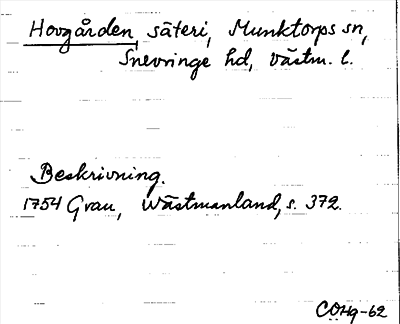 Hovgården, säteri, Munktorps sn,
Snevringe hd, västm. l.
Beskrivning.
1754 Grau, Wästmanland, s. 372.
COHg-62